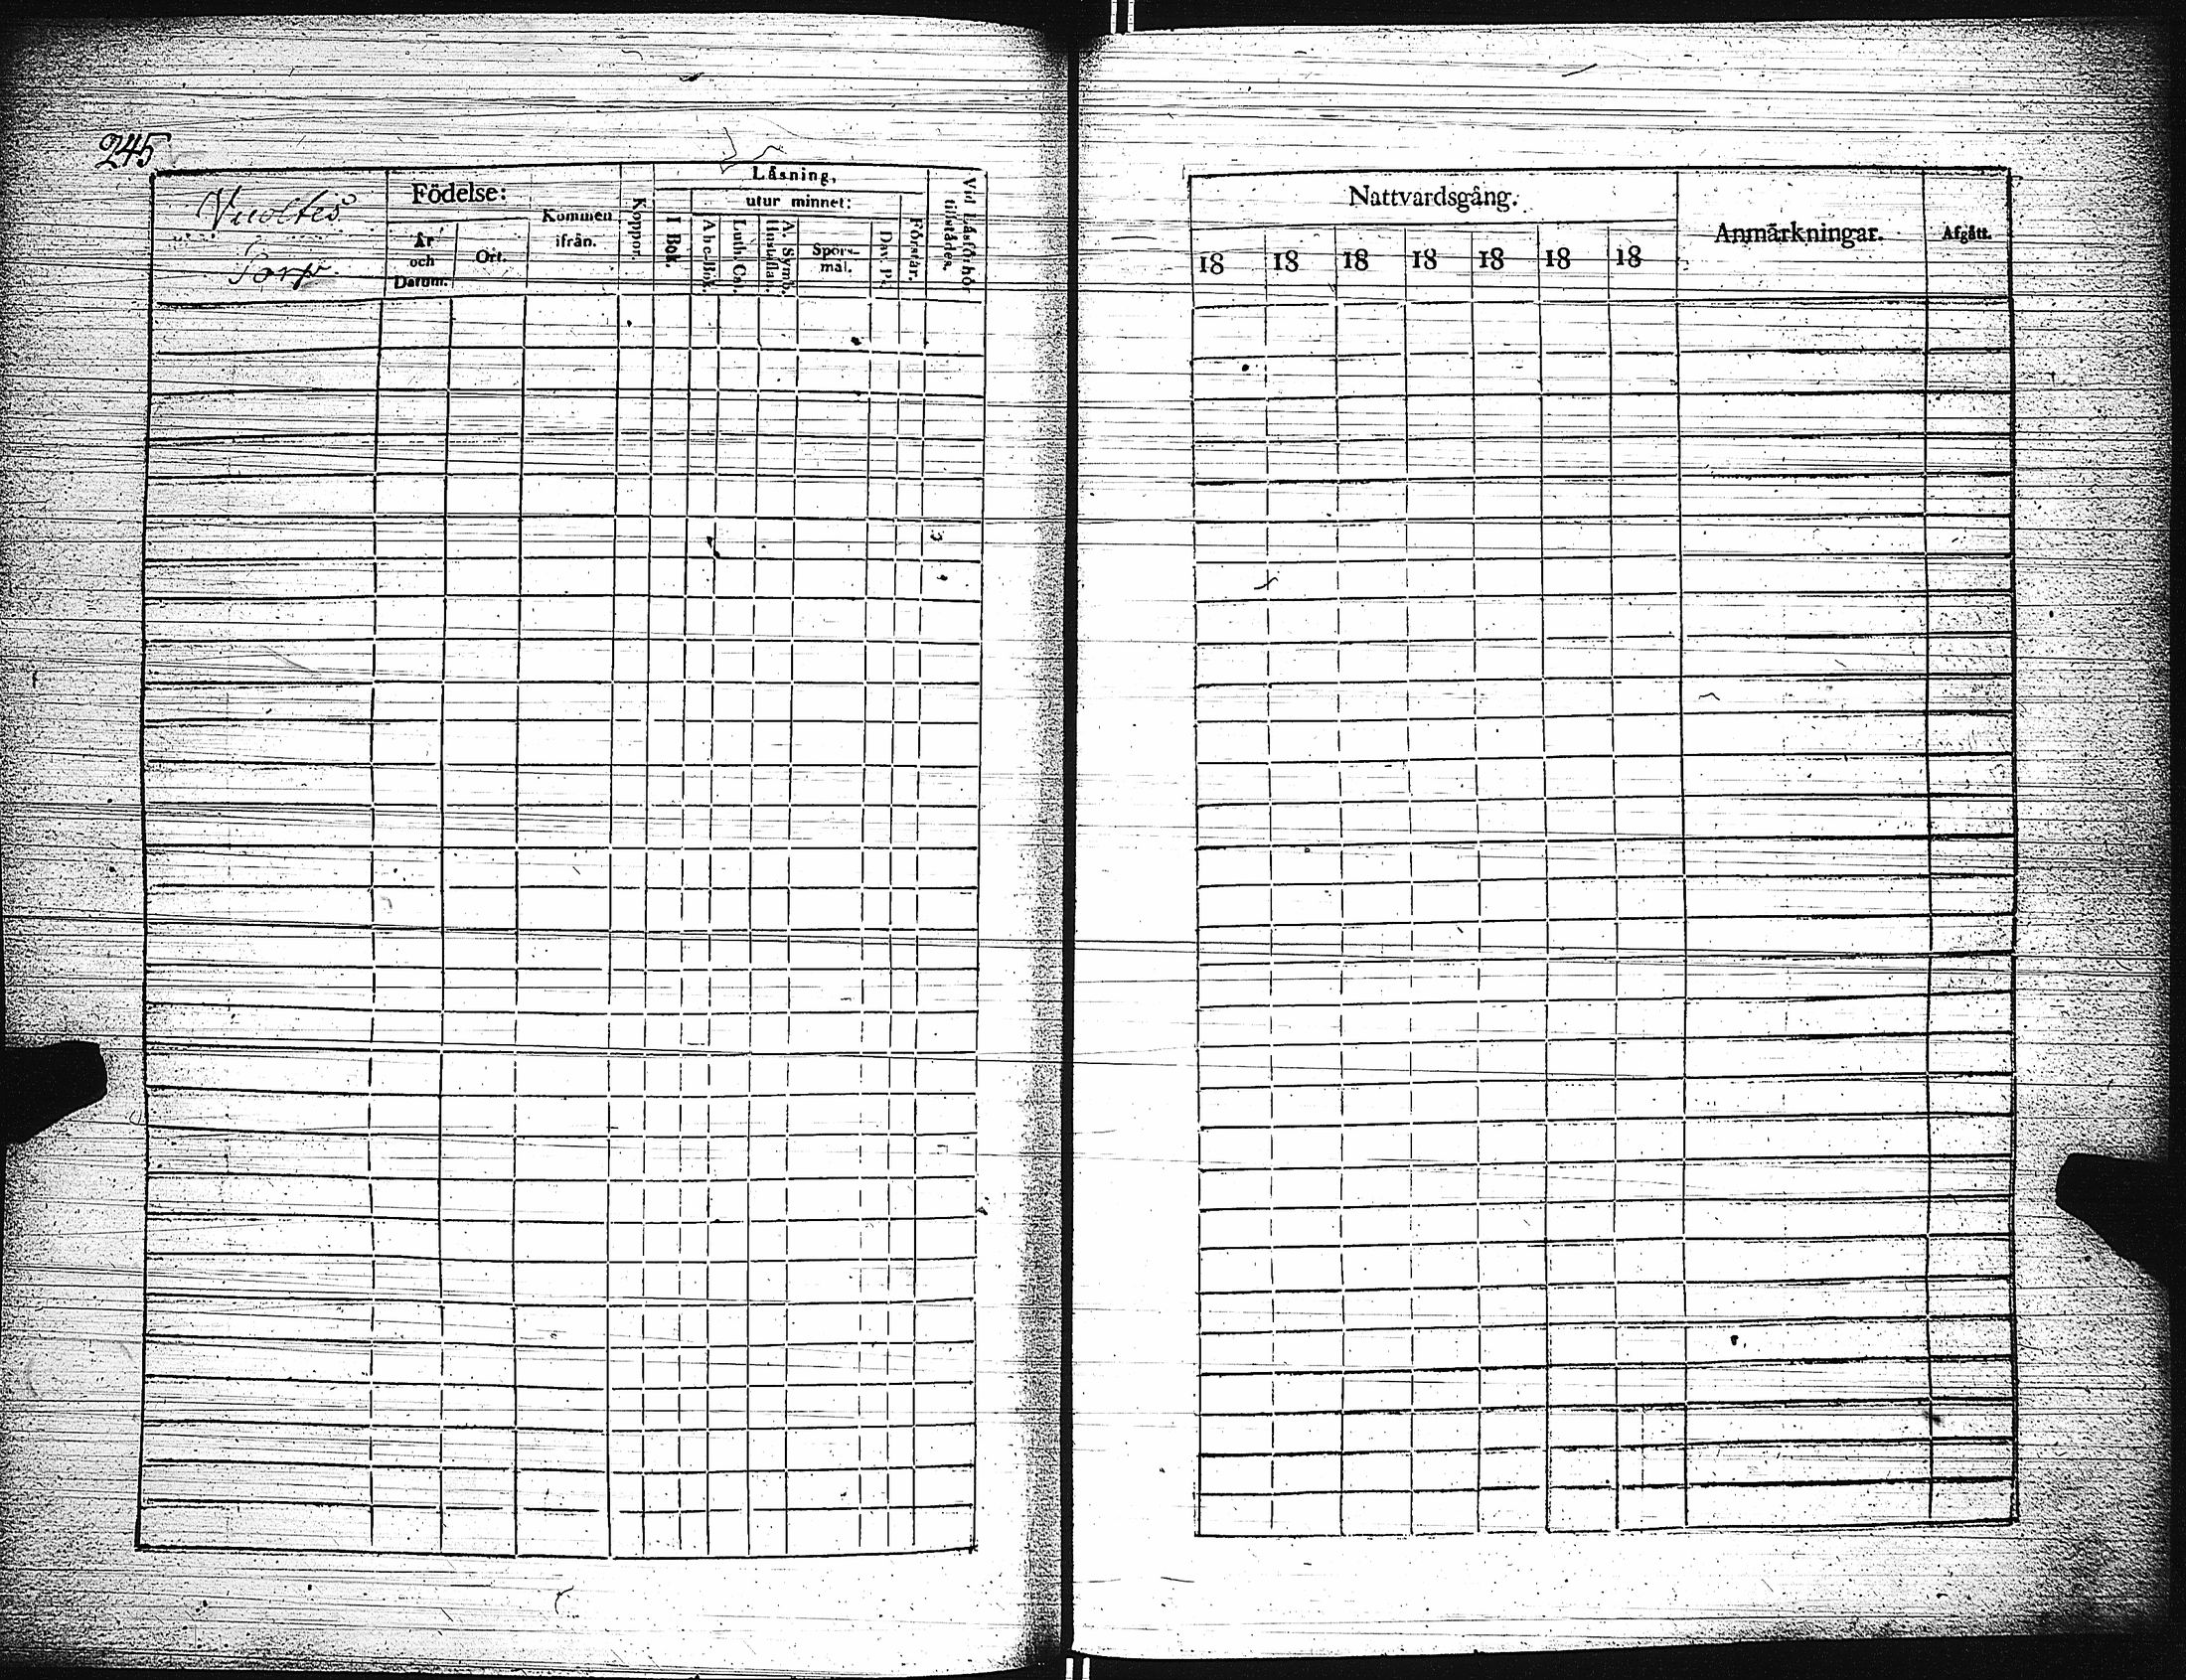 245
Torp
Födelse:
År och Datum.
Ort.
Kommen ifrån.
Koppor.
Läsning,
I Bok.
utur minnet:
Abc-Bok.
Luth. Cat.
A. Symb. Hustaflan.
Spörs-mål.
Dav. Ps.
Förstår.
Vid Läsförhör tilstädes.
Nattvardsgång.
18 18 18 18 18 18 18
Anmärkningar.
Afgått.